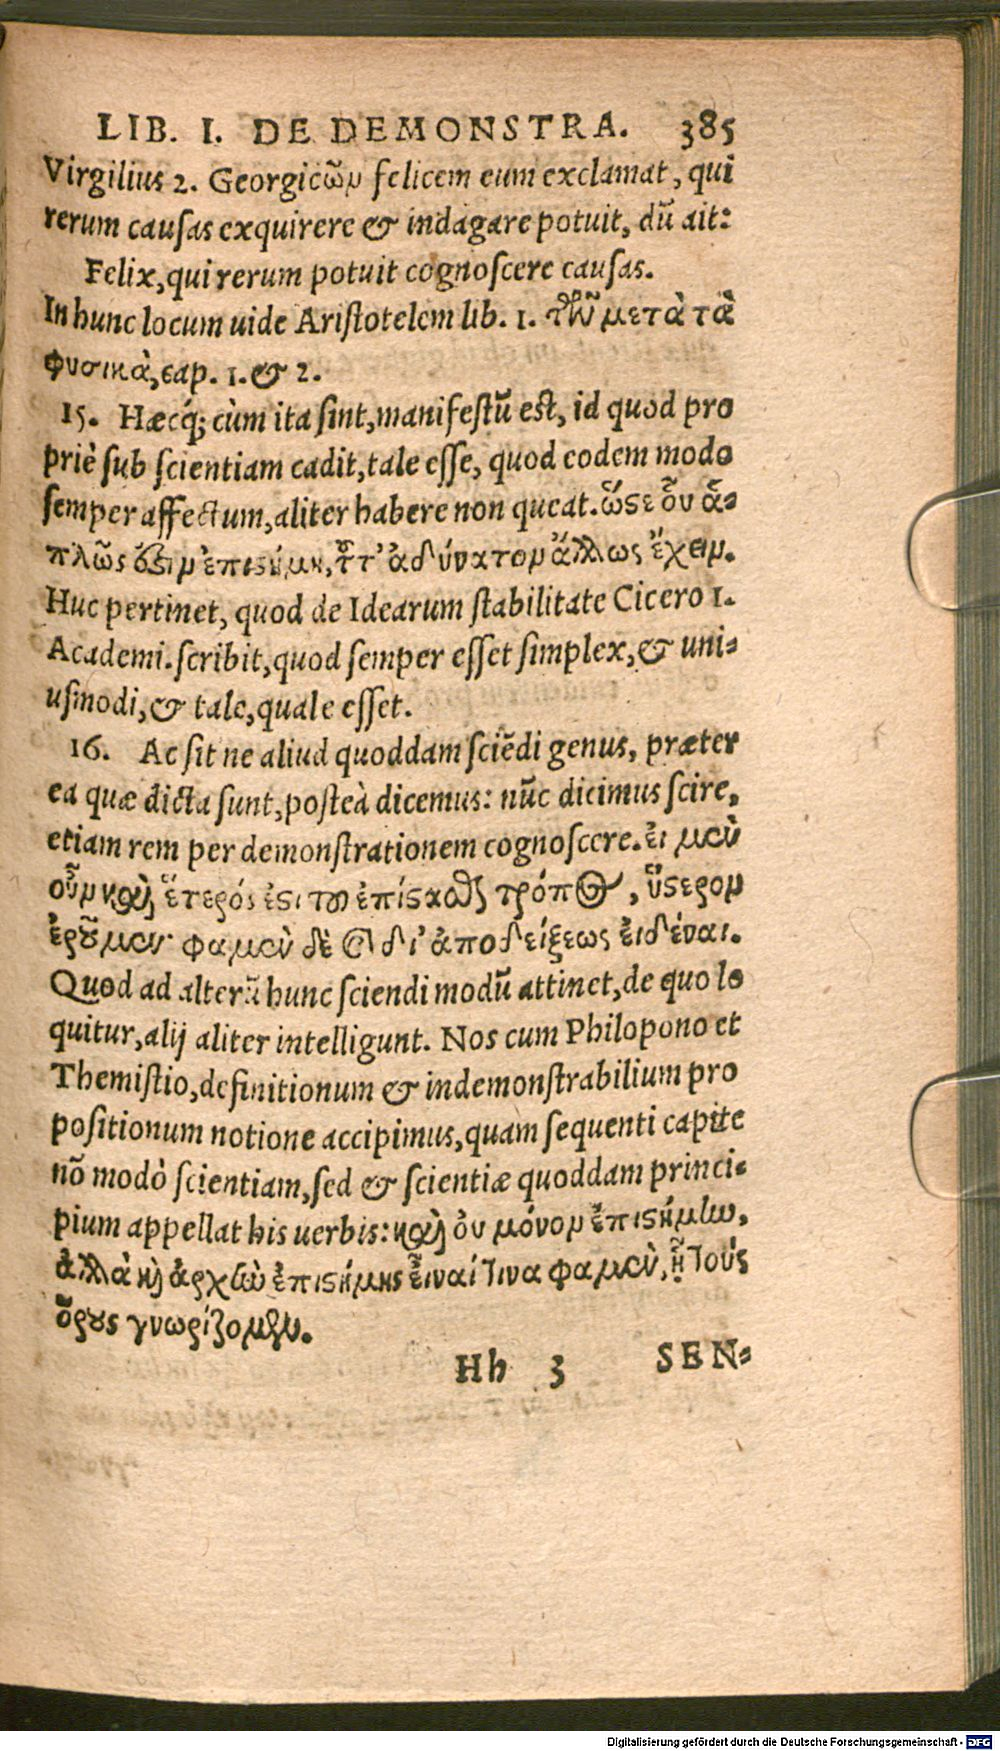 LIB. I. DE DEMONSTRA. 385
Virgilius 2. Georgicῶν felicem eum exclamat, qui
rerum causas exquirere & indagare potuit, dũ ait:
Felix, qui rerum potuit cognoscere causas.
In hunc locum uide Aristotelem lib. 1. τῶν μετὰ τὰ
φυσικὰ, cap. 1. & 2.
15. Hæcq́; cùm ita sint, manifestũ est, id quod pro
priè sub scientiam cadit, tale esse, quod eodem modo
semper affectum, aliter habere non queat. ὥστε οὗ ἁ-
πλῶς ἔστιν ἐπιστήμη, τοῦτ' ἀδύνατον ἄλλως ἔχειν.
Huc pertinet, quod de Idearum stabilitate Cicero 1.
Academi. scribit, quod semper esset simplex, & uni-
usmodi, & tale, quale esset.
16. Ac sit ne aliud quoddam sciẽdi genus, præter
ea quæ dicta sunt, posteà dicemus: nũc dicimus scire,
etiam rem per demonstrationem cognoscere. ἐι μὲν
οὖν καὶ ἕτερός ἐστι τοῦ ἐπίστασθαι τρόπος, ὕστερον
ἐροῦμεν· φαμὲν δὲ καὶ δι' ἀποδείξεως ἐιδέναι.
Quod ad alterũ hunc sciendi modũ attinet, de quo lo
quitur, alij aliter intelligunt. Nos cum Philopono et
Themistio, definitionum & indemonstrabilium pro
positionum notione accipimus, quam sequenti capite
nõ modò scientiam, sed & scientiæ quoddam princi-
pium appellat his uerbis: καὶ οὐ μόνον ἐπιστήμην,
ἀλλὰ καὶ ἀρχὴν ἐπιστήμης εἶναί τινα φαμὲν, ᾗ τοὺς
ὅρους γνωρίζομεν.
Hh 3 SEN-
Digitalisierung gefördert durch die Deutsche Forschungsgemeinschaft - DFG